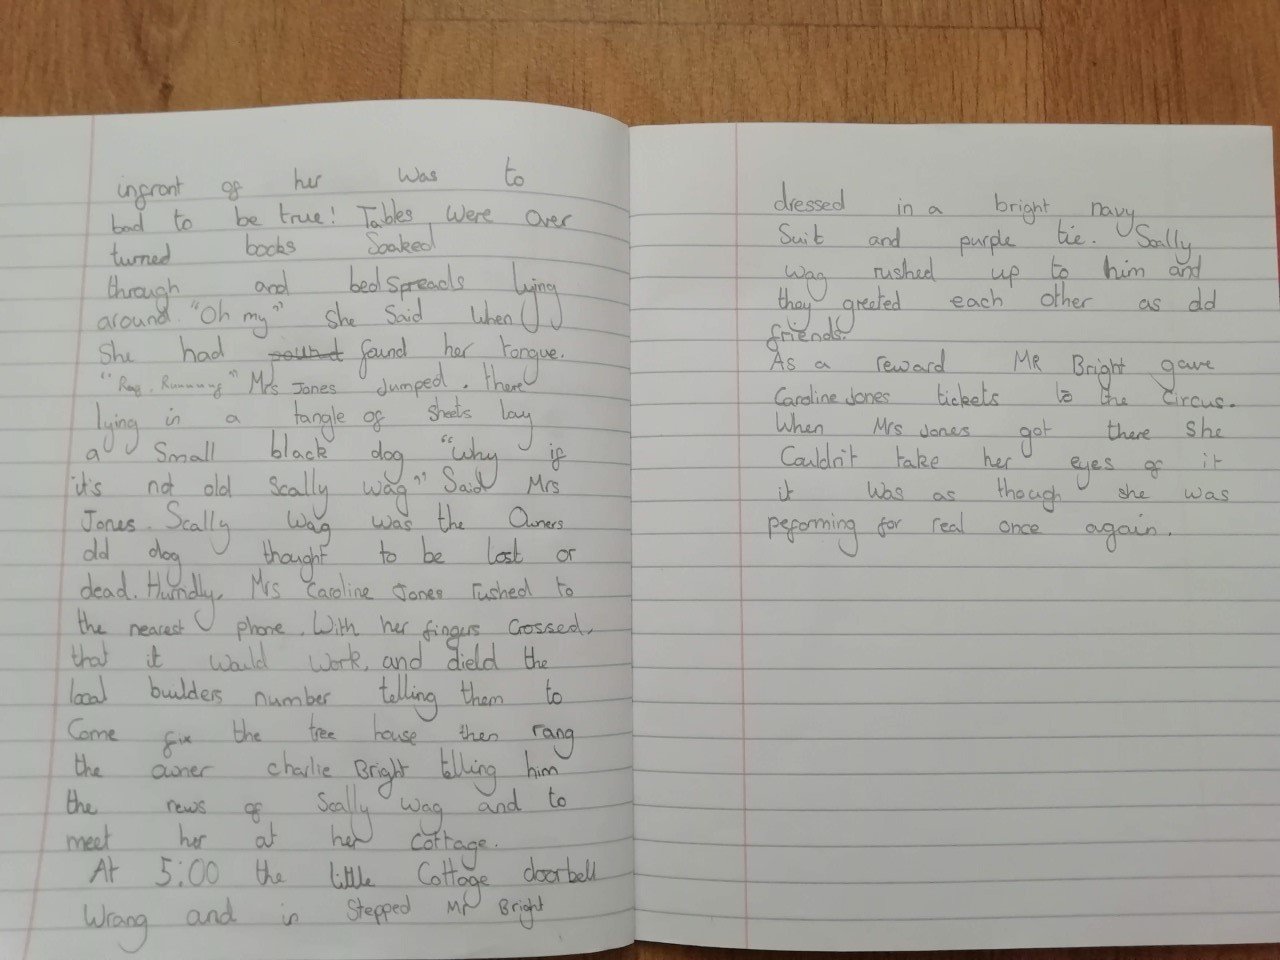 infront of her was to
bad to be true! Tables were over
turned books Soaked
through and bedspreads lying
around. "Oh my" She Said when
She had found her tongue.
Mrs Jones Jumped. there
lying in a tangle of sheets lay
a Small black dog "Why if
it's not old Scally wag" Said Mrs
Jones. Scally Wag was the Owners
old dog thought to be lost or
dead. Mrs Caroline Jones rushed to
the nearest phone. With her fingers Crossed,
that it would work, and dield the
local builders number telling them to
Come fix the tree house then rang
the owner charlie Bright telling him
the news of Scally Wag and to
meet her at her cottage.
At 5:00 the little Cottage doorbell
Wrang and in Stepped Mr Bright
dressed in a bright navy
Suit and purple tie. Scally
Wag rushed up to him and
they greeted each other as old
friends.
As a reward MR Bright gave
Caroline Jones tickets to the Circus.
When Mrs Jones got there she
Couldn't take her eyes of it
it was as though she was
peforming for real once again.